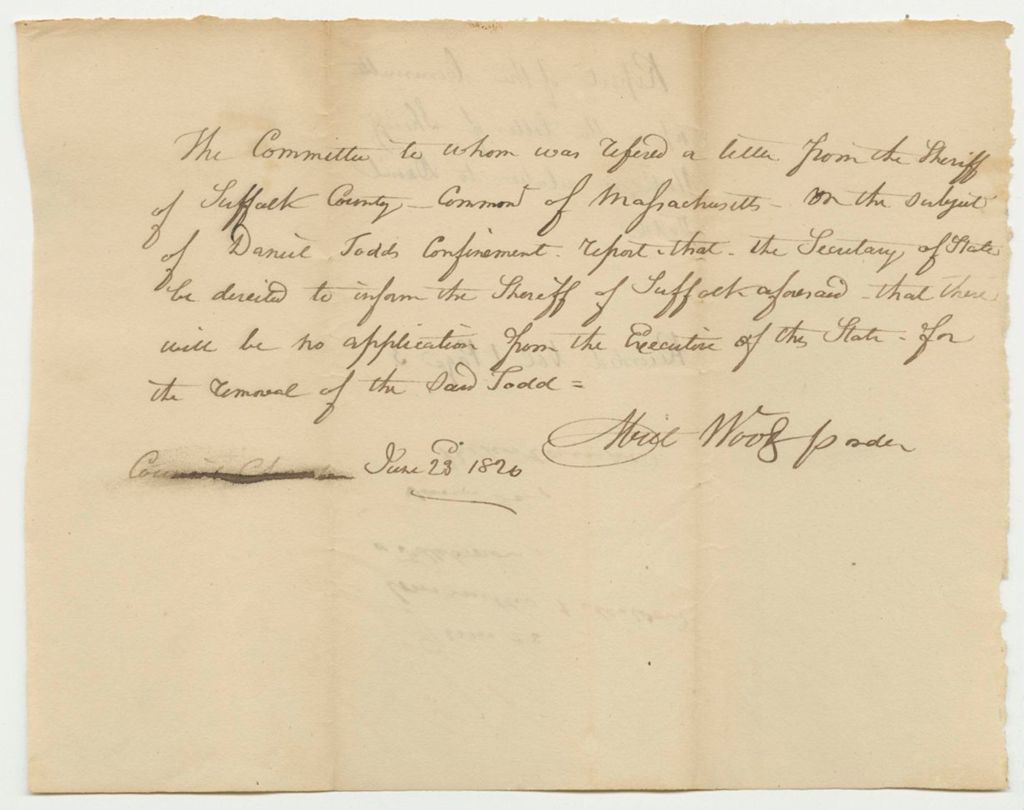 The Committee to whom was refered a letter from the Sheriff
of Suffolk County - Commonth of Massachusetts - on the subject
of Daniel Todds Confinement - report - that - the Secretary of State
be directed to inform the Sheriff of Suffolk aforesaid - that there
will be no application from the Executive of this State - for
the removal of the said Todd =
Abiel Wood pr order
Council Chamber June 23d 1820